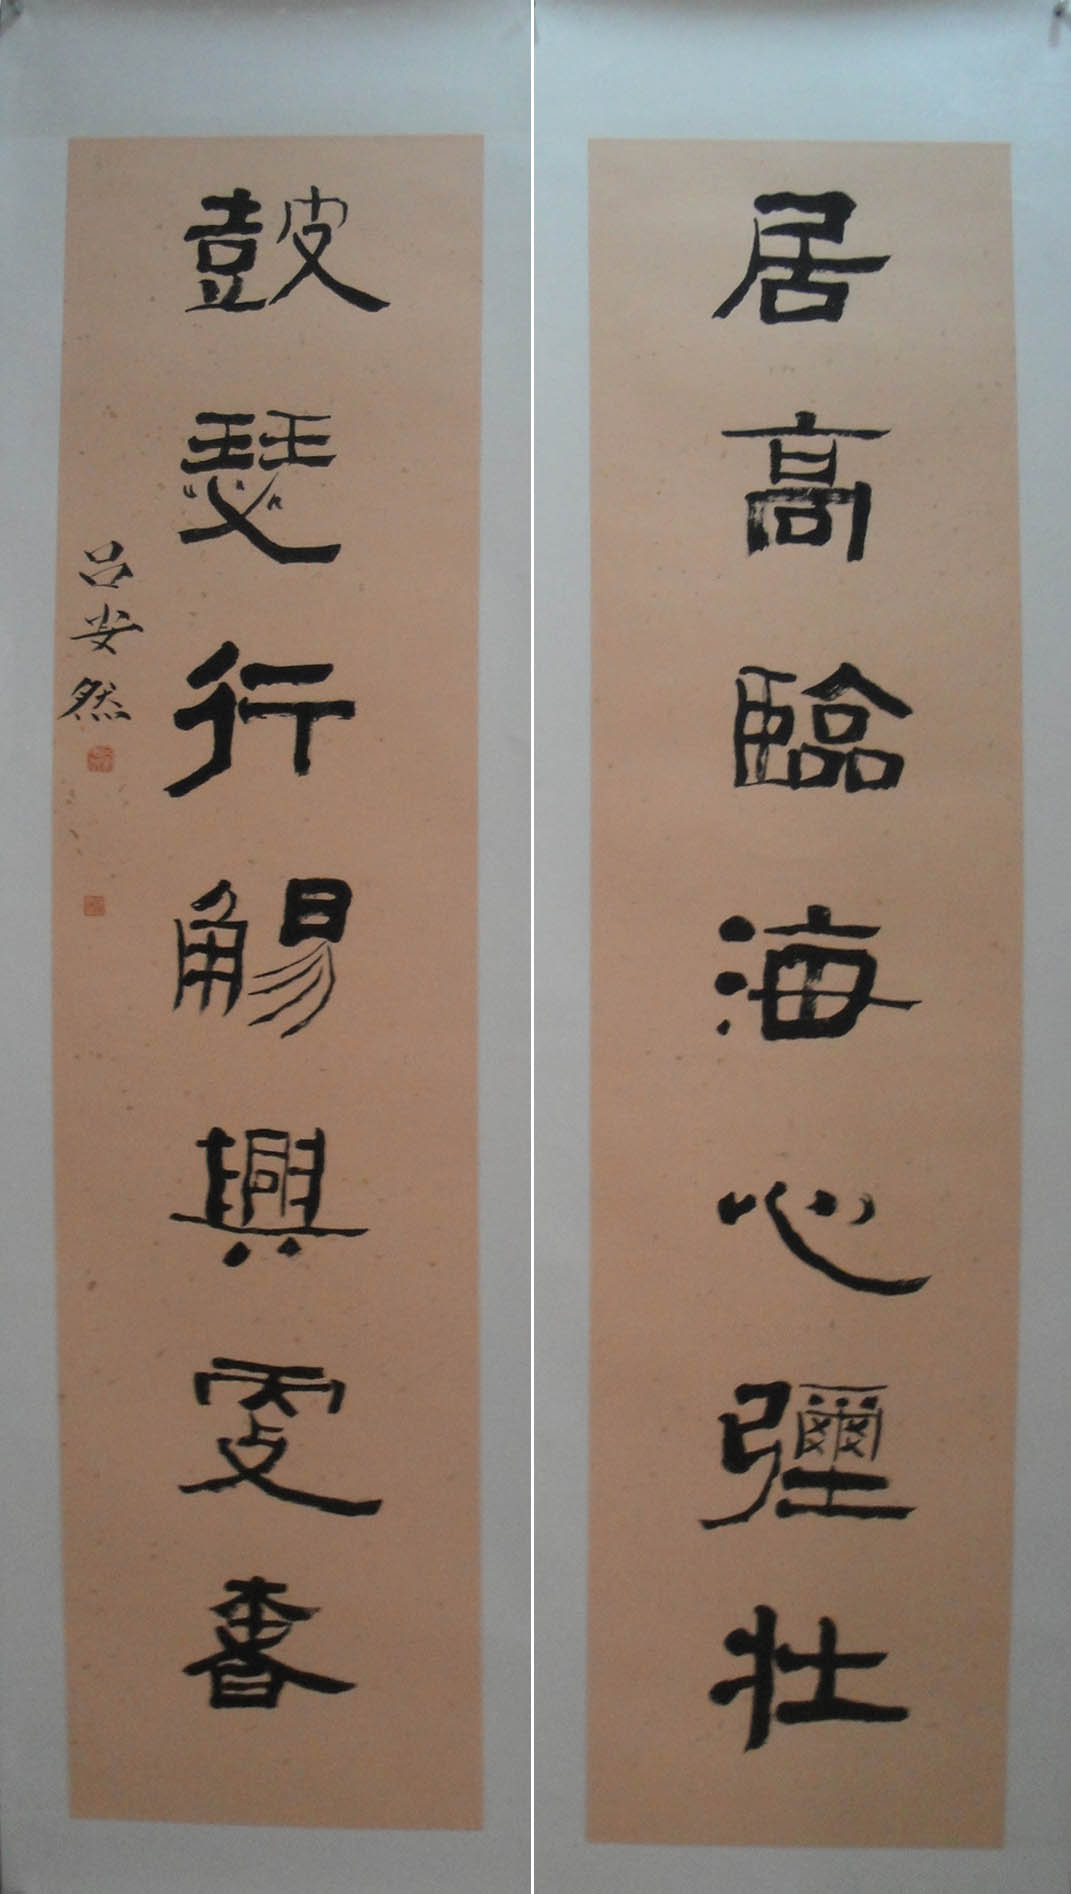 居高臨海心彌壯
皷瑟行觴興更
呂安然